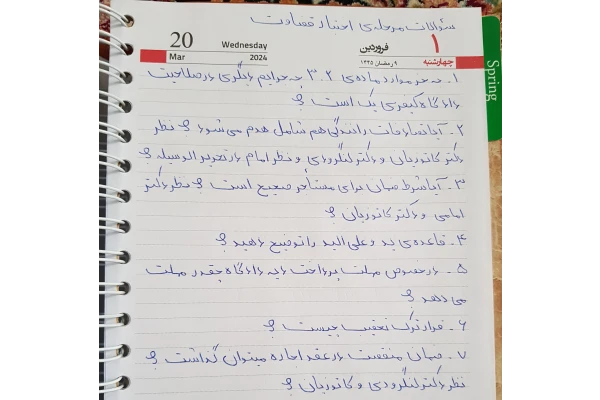 سؤالات مرحله‌ی اختبار قضاوت
20 Wednesday فروردین ۱
Mar 2024 ۹ رمضان ۱۴۴۵ چهارشنبه
Spring
۱- به جز موارد ماده‌ی ۳۰۲ چه جرایم دیگری در صلاحیت
دادگاه کیفری یک است ؟
۲- آیا تصادفات رانندگی هم شامل هدم می‌شود ؟ نظر
دکتر کاتوزیان و دکتر لنگرودی و نظر امام در تحریر الوسیله ؟
۳- آیا شرط ضمان برای مستأجر صحیح است ؟ نظر دکتر
امامی و دکتر کاتوزیان ؟
۴- قاعده‌ی ید و علی الید را توضیح دهید ؟
۵- در خصوص مهلت پرداخت دیه دادگاه چقدر مهلت
می دهد ؟
۶- قرار ترک تعقیب چیست ؟
۷- ضمان منفعت در عقد اجاره میتوان گذاشت ؟
نظر دکتر لنگرودی و کاتوزیان ؟